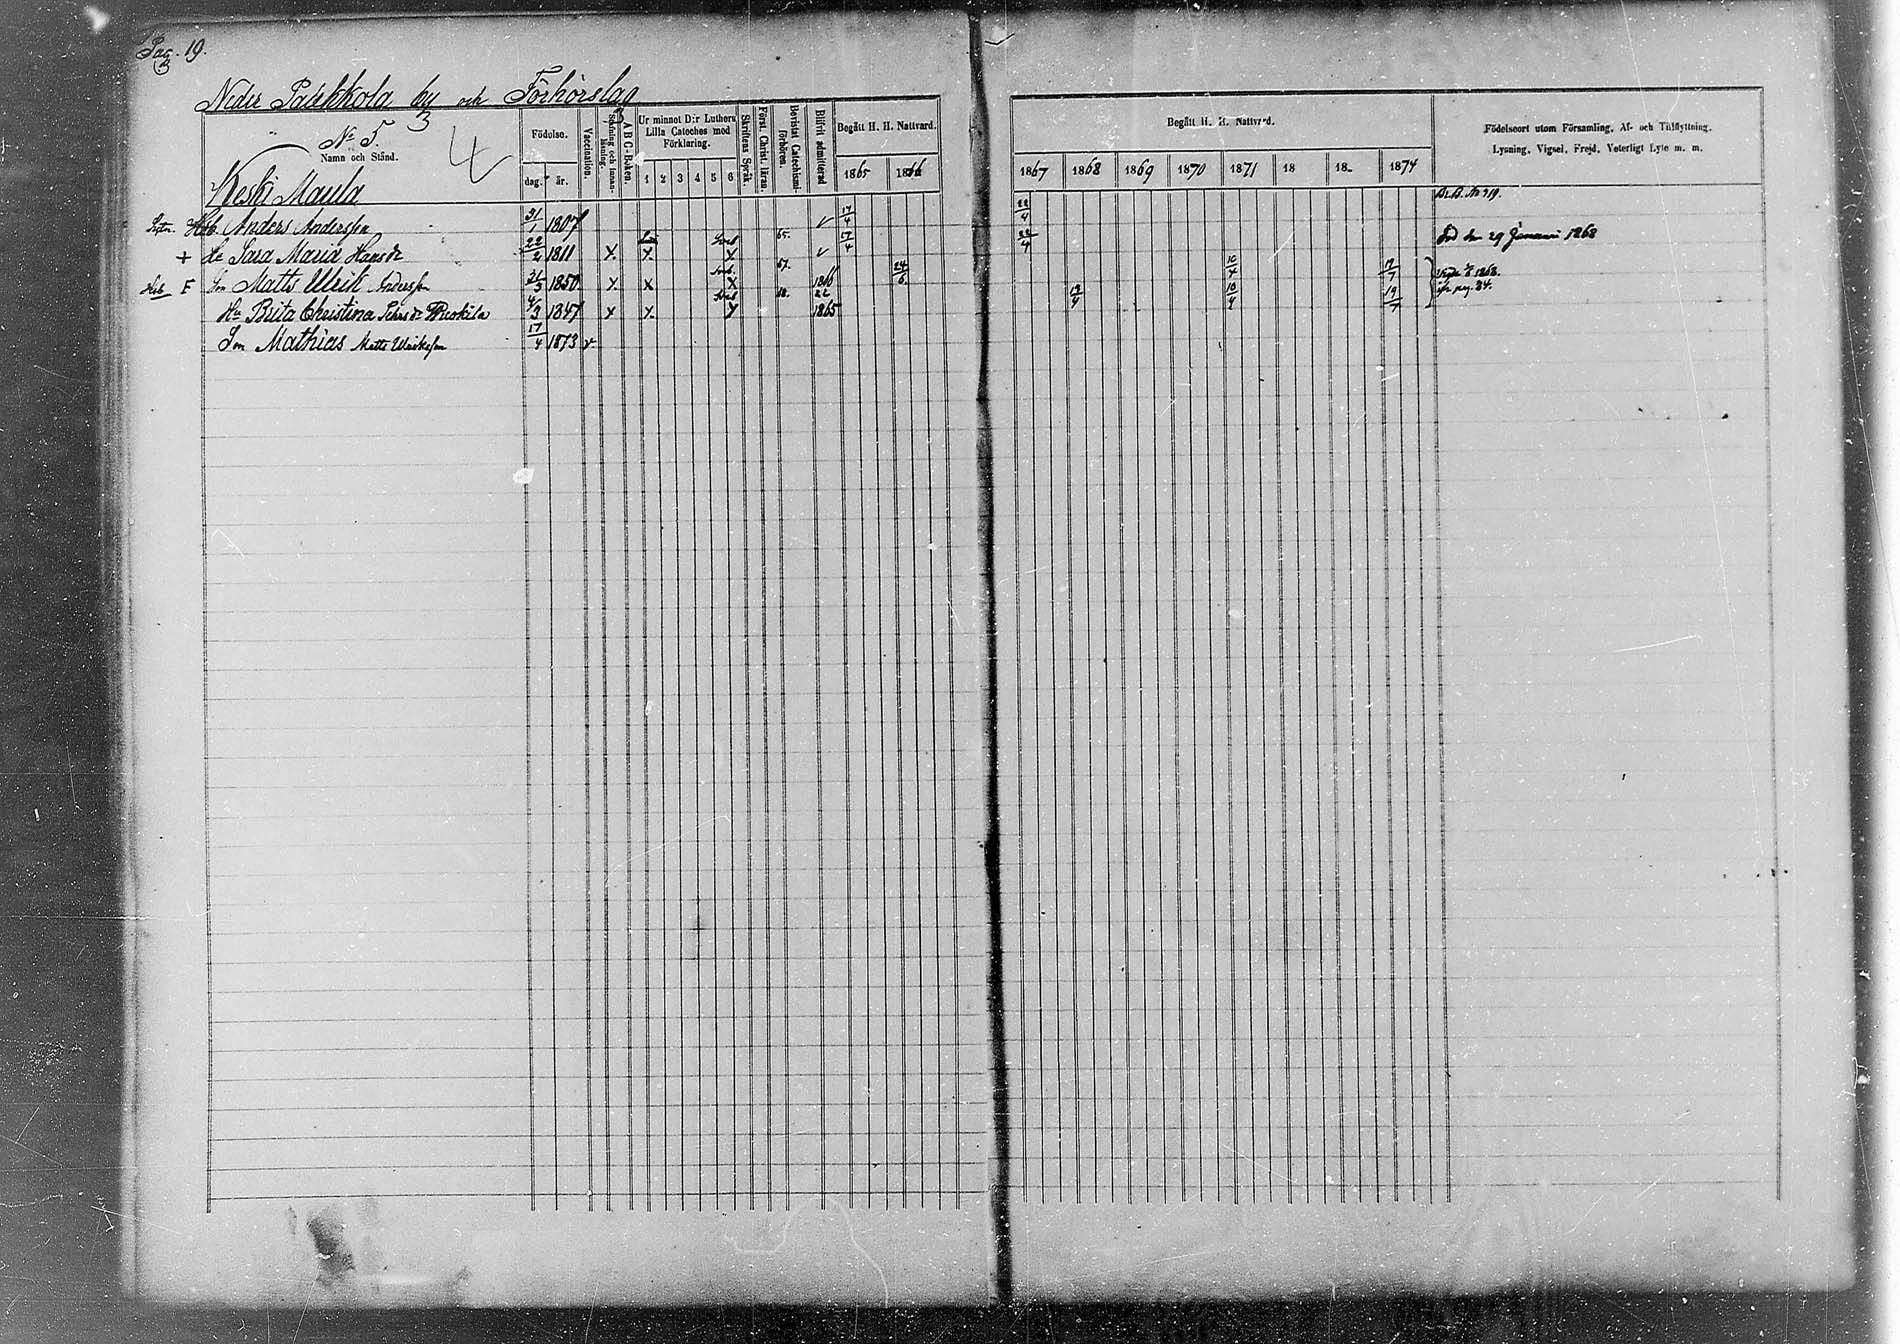 Pag. 19.
Neder Paakkola by och Förhörslag
3
No 5.
4
Namn och Stånd.
Födelse.
dag. år.
Vaccination.
Stafning och innanläsning.
A B C-Boken.
Ur minnet D:r Luthers Lilla Cateches med Förklaring.
1 2 3 4 5 6
Skriftens Språk.
Först. Christ. läran.
Bevistat Catechismi förhören.
Blifvit admitterad
Begått H. H. Nattvard.
1865 1866
Begått H. H. Nattvard.
1867 1868 1869 1870 1871 18 18 1874
Födelseort utom Församling, Af- och Tillflyttning,
Lysning, Vigsel, Frejd, Veterligt Lyte m. m.
Keski Maula
Br.B. No 219.
Anders Andersson 31/1 1807 17/4 22/4
+ Hu Sara Maria Hansdr 22/2 1811 x x x 65. 17/4 22/4 Död den 29 Januari 1868
Hsb F Son Matts Ulrik Andersson 1850 x x x 67. 1866 24/6 10/4 19/7
Hu Brita Christina 4/3 1847 x x x 68. 22 1865 12/4 10/4 19/7 pag. 84.
Son Mathias Matts Ulriksson 17/4 1873 v.